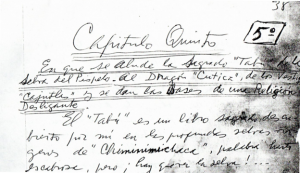 38
5º
Capitulo Quinto
En que se alude la Sagrada "Tabú" de la
Selva del Pospelo - Al Dragón "Cutica", de los
y se dan las Bases de una Religión
Desligante.
El "Tabú" es un libro sagrado descu
bierto por mi en las profundas selvas
de "Chimimimichaca", palabra
escabrosa, pero ¡hay que ver la selva!...